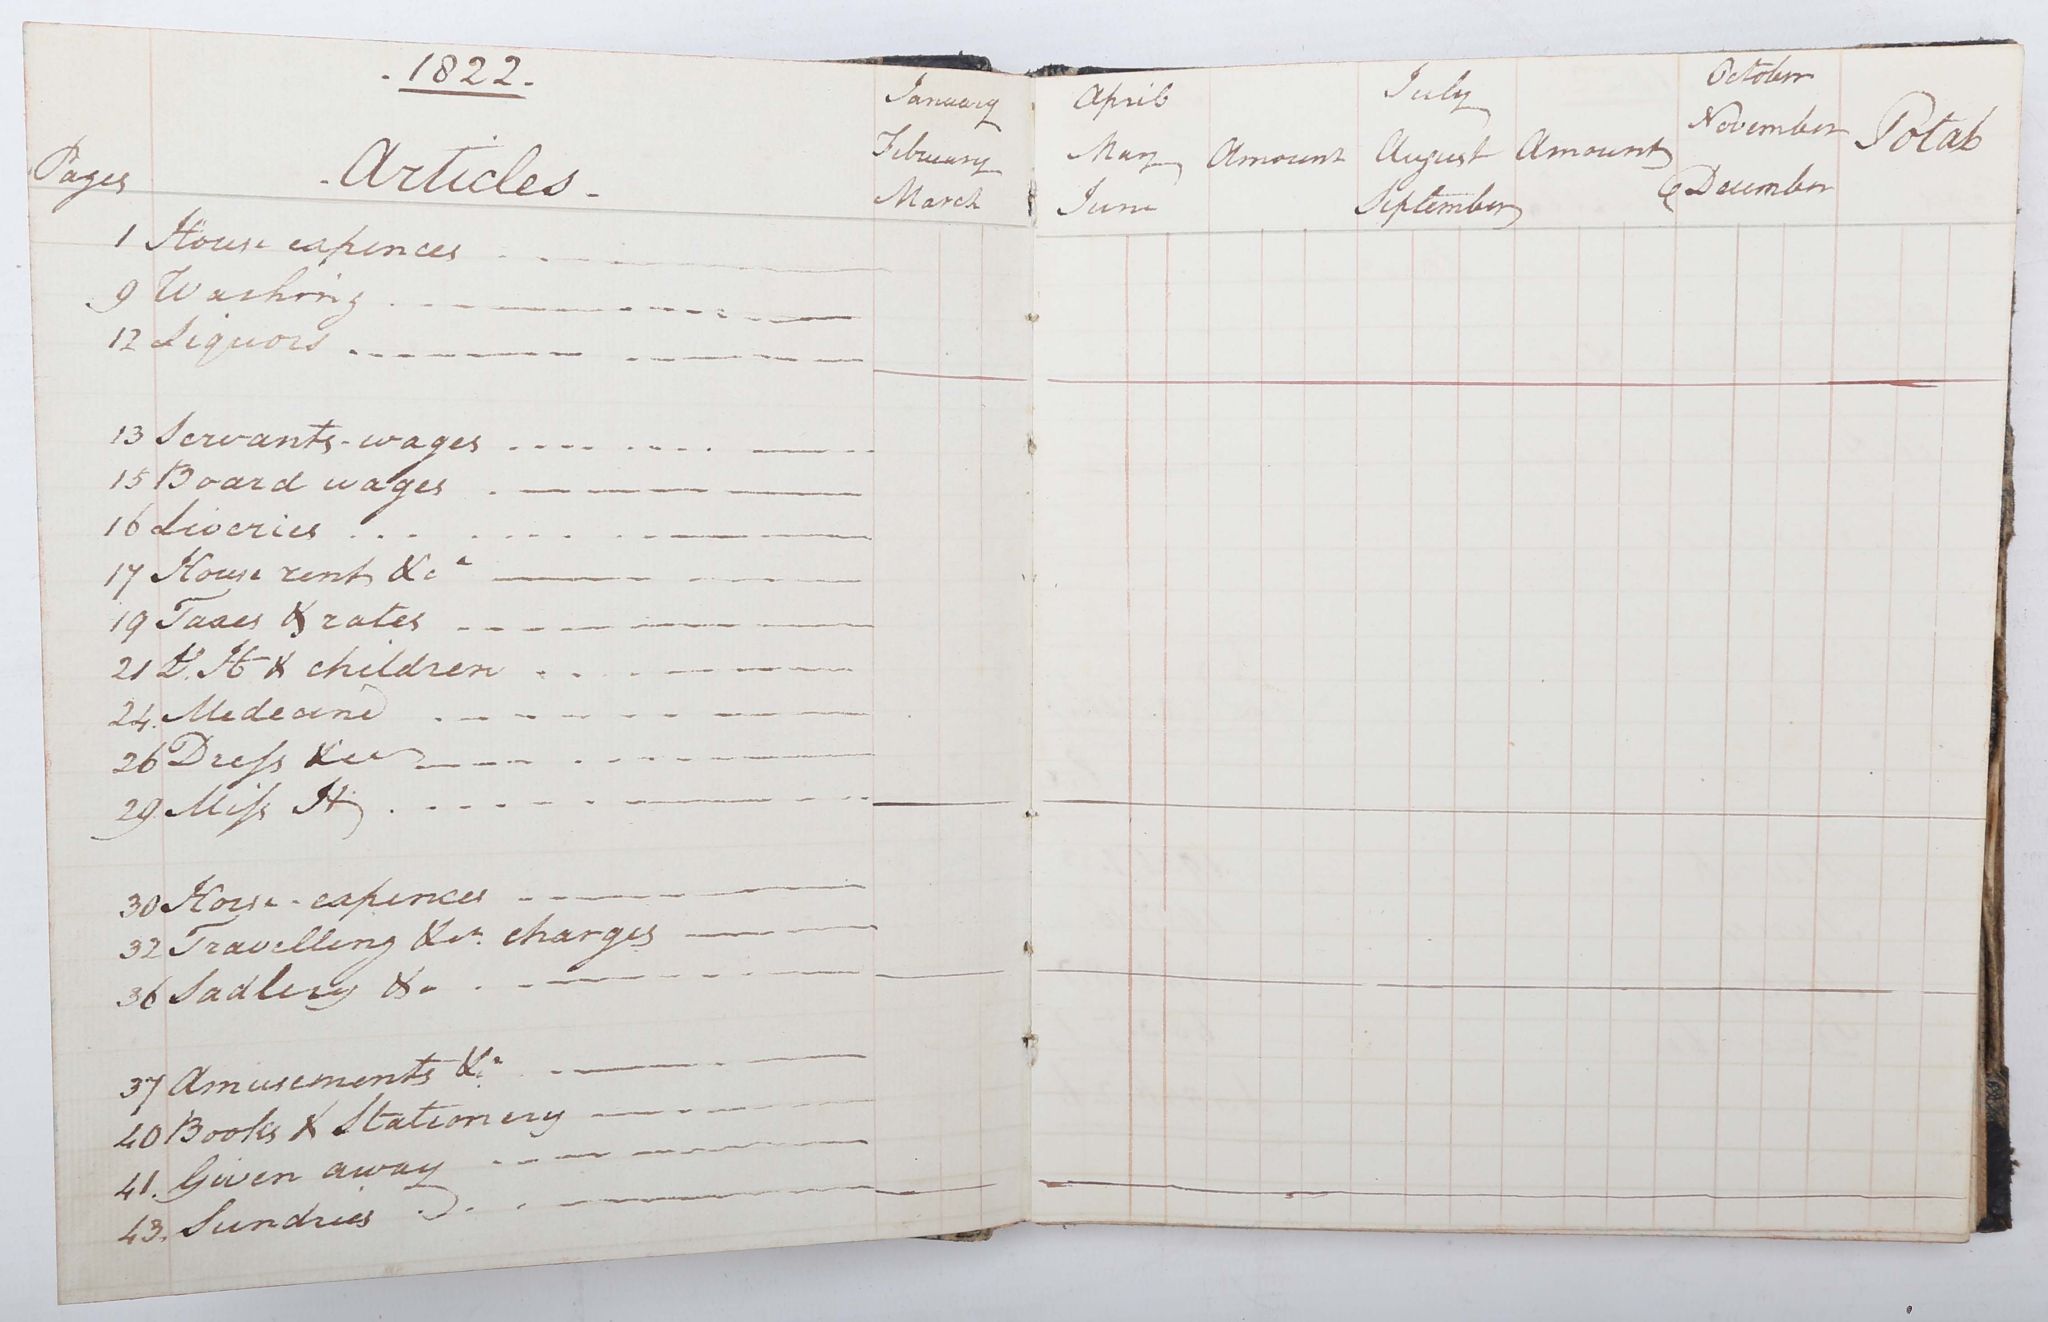 . 1822 .
Pages
- Articles -
January
February
March
April
May
June
Amount
July
August
September
Amount
October
November
& December
Total
1 House expences
9 Washing
12 Liquors
13 Servants-wages
15 Board wages
16 Liveries
17 House rent &c
19 Taxes & rates
21 H & children
24. Medecine
26 Dress &c
29 Miss H
30 Horse-expences
32 Travelling &c charges
36 Sadlery &c
37 Amusements &c
40 Books & Stationery
41. Given away
43. Sundries